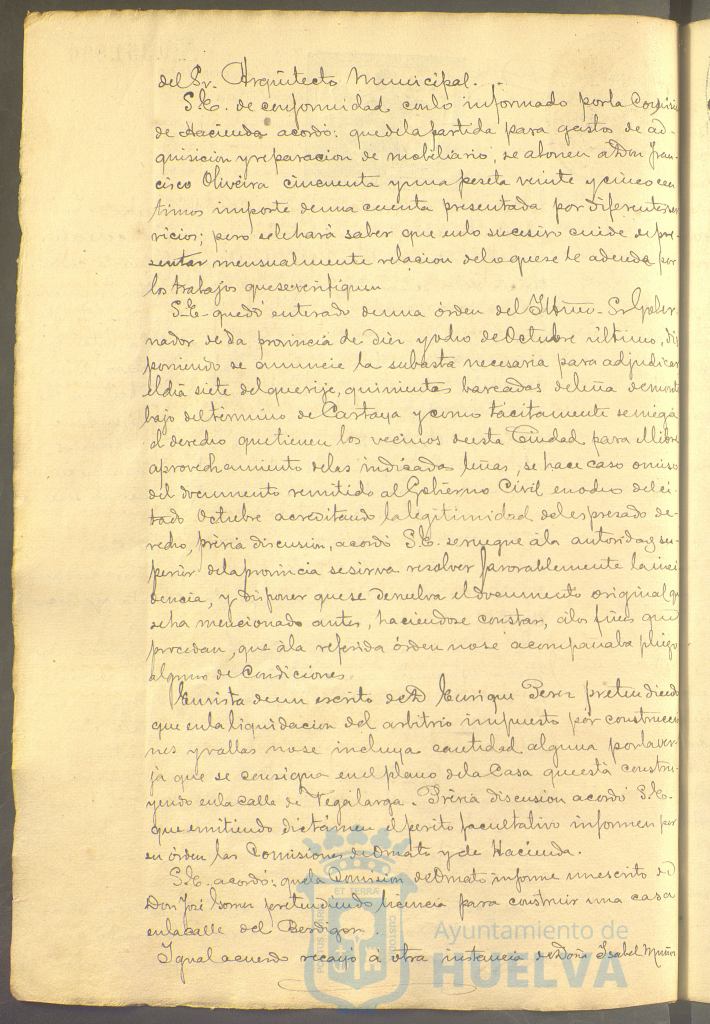 del Sr. Arquitecto Municipal.
S.E. de conformidad con lo informado por la Comisión
de Hacienda acordó: que de la partida para gastos de ad-
quisicion y reparacion de mobiliario, se abonen a Don Fran-
cisco Oliveira cincuenta y una peseta veinte y cinco cen
timos importe de una cuenta presentada por diferentes ser
vicios; pero se le hará saber que en lo sucesivo cuide de pre
sentar mensualmente relacion de lo que se le adeuda por
los trabajos que se verifiquen
S.E. quedó enterado de una órden del Iltmo. Sr. Gober-
nador de la provincia de diez y ocho de Octubre último, dis
poniendo se anuncie la subasta necesaria para adjudicar
el dia siete del que rije, quinientas barcadas de leña de monte
bajo del término de Cartaya y como tácitamente se niega
el derecho que tienen los vecinos de esta Ciudad para el libre
aprovechamiento de las indicadas leñas, se hace caso omiso
del documento remitido al Gobierno Civil en ocho del ci-
tado Octubre acreditando la legitimidad del espresado de-
recho, prévia discusion, acordó S.E. se ruegue á la autoridad su-
perior de la provincia se sirva resolver favorablemente la inci
dencia, y disponer que se devuelva el documento original q
se ha mencionado antes, haciendose constar, á los fines que
procedan, que á la referida órden no se acompañaba pliego
alguno de Condiciones.
En vista de un escrito de D. Enrique Perez pretendiendo
que en la liquidacion del arbitrio impuesto por construccio
nes y vallas no se incluya cantidad alguna por la ver-
já que se consigna en el plano de la Casa que está constru-
yendo en la calle de Vegalarga. Prévia discusion acordó S.E.
que emitiendo dictámen el perito facultativo informen por
su órden las Comisiones de Ornato y de Hacienda.
S.E. acordó: que la Comision de Ornato informe un escrito de
Don José Gomez pretendiendo licencia para construir una casa
en la calle del Berdigon.
Igual acuerdo recayó á otra instancia de Doña Isabel Muñoz
Ayuntamiento de
HUELVA